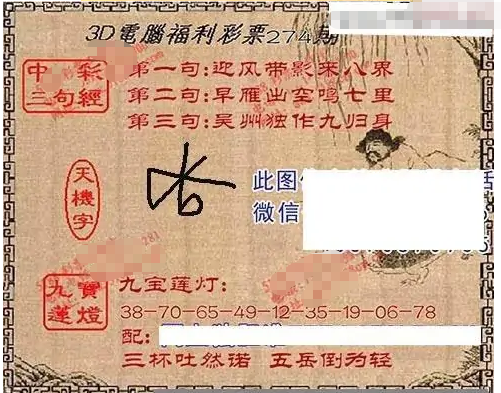 3D電腦福利彩票274期
中彩
三句經
第一句:迎风带影来八界
第二句:早雁出空鸣七里
第三句:吴州独作九归身
天機字
此图
微信
九寶
蓮燈
九宝莲灯:
38-70-65-49-12-35-19-06-78
配:
三杯吐然诺 五岳倒为轻